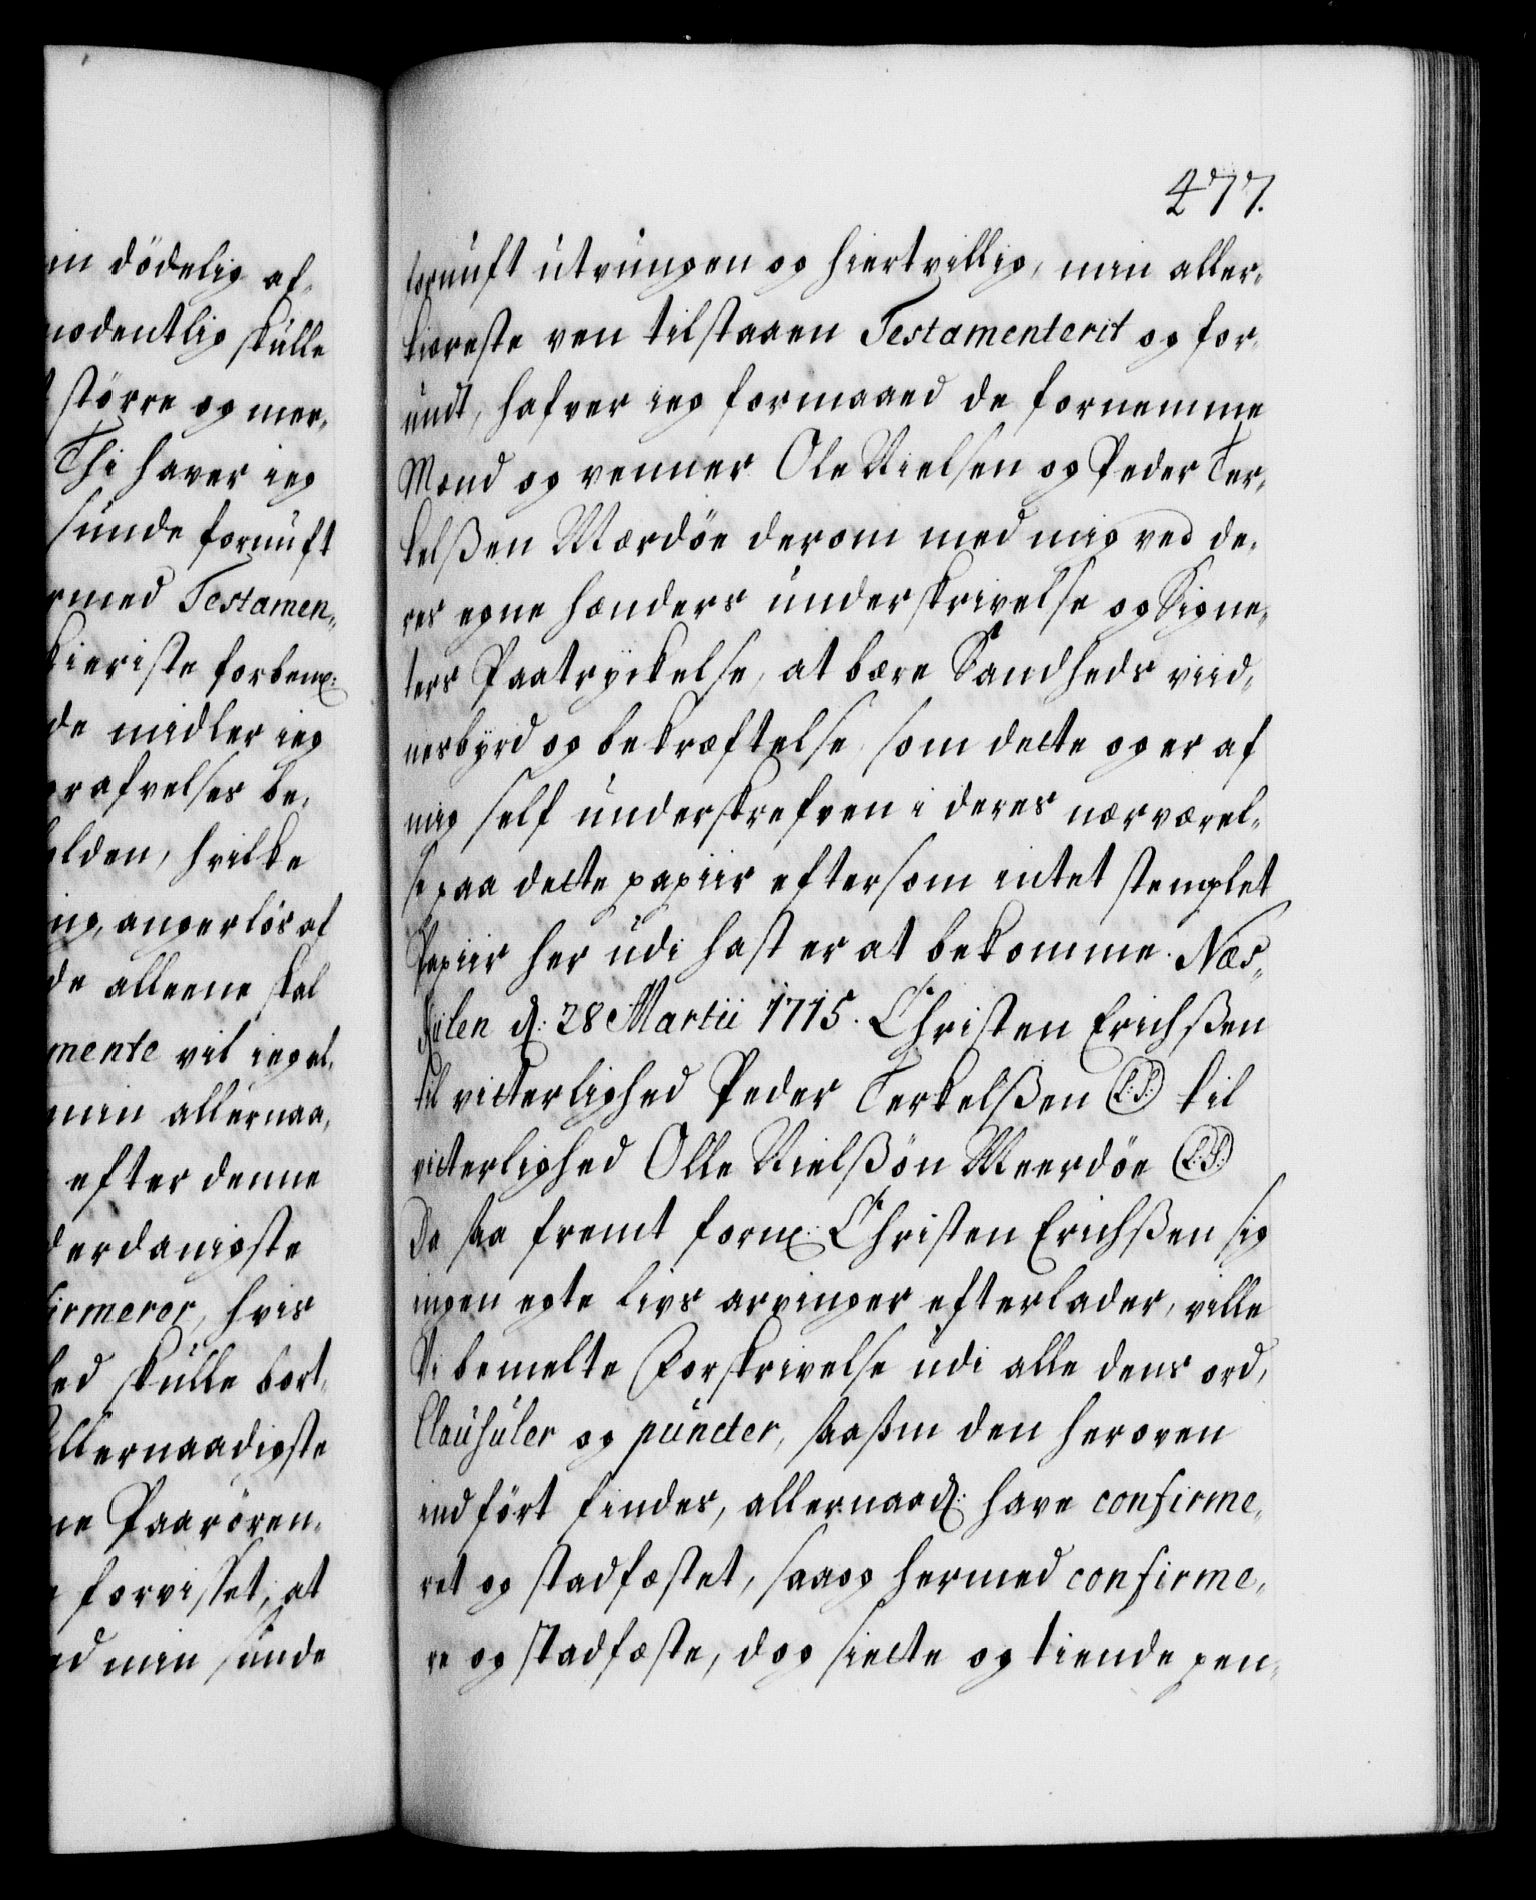 in dödelig af-
modentlig skulle
större og mer-
Thi haver ieg
sunde fornuft
rmed Testamen-
kieriste forbem:
de midler ieg
grafvelses be-
olden, hvilke
ing, angerlös af
de alleene skal
mente vil ieg al-
min allernaa-
efter denne
derdanigste
firmerer, hvis
ed skulle bort-
Allernaadigste
ne Paarören-
forvisset, at
ed min sunde
477.
fornuft utvungen og hiertvillig, min aller-
kiæreste ven tilstaaen Testamenterit og for-
undt, hafver ieg formaaed de fornemme
Mænd og venner Ole Nielsen og Peder Ter-
kelßen Mærdöe derom med mig ved de-
res egne hænders underskrivelse og Signe-
ters Paatryckelse, at bære Sandheds viid-
nesbyrd og bekræftelse, som dette og er af
mig self underskrefven i deres nærværel-
se paa dette papiir eftersom intet stemplet
Papiir her udi hast er at bekomme. Næs-
kilen d: 28 Martii 1715. Christen Erichßen
til vitterlighed Peder Terkelßen (L.S.) til
vitterlighed Olle Nielßön Meerdöe (L.S.)
Da saa fremt forn: Christen Erichßen sig
ingen egte livs arvinger efterlader, ville
Vi bemelte Forskrivelse udi alle dens ord,
Clausuler og puncter, saasom den heroven
indfört findes, allernaad: have confirme-
ret og stadfæstet, saa og hermed confirme-
re og stadfæste, dog siette og tiende pen-